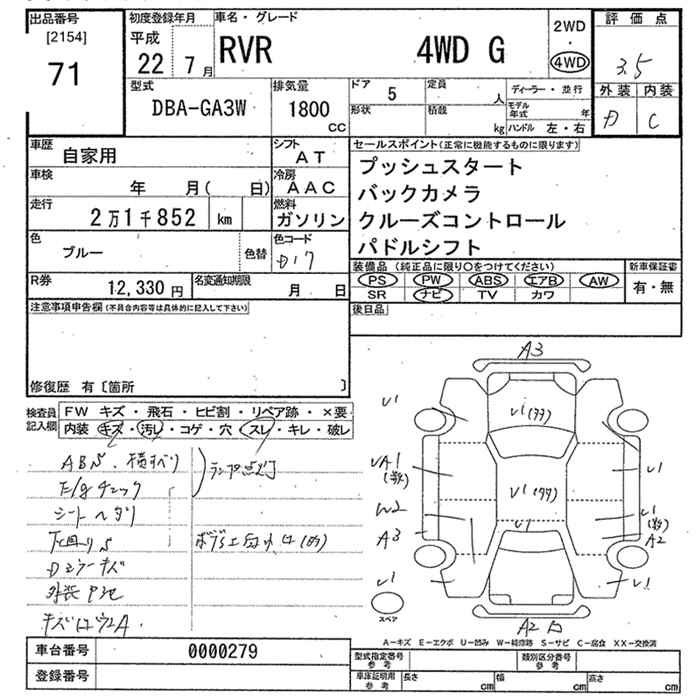 出品番号
[2154]
71
初度登録年月
平成
22 7月
車名・グレード
RVR 4WD G
2WD
・
4WD
評価点
3.5
外装 内装
D C
型式
DBA-GA3W
排気量
1800
CC
ドア 5
定員 人
形状
積載 kg
ディーラー・並行
モデル年式 年
ハンドル 左・右
車歴
自家用
シフト
AT
車検
年 月( 日)
冷房
AAC
走行
2万1千852 km
燃料
ガソリン
色
ブルー
色替
色コード
D17
R券
12,330円
名変通知期限
月 日
セールスポイント(正常に機能するものに限ります)
プッシュスタート
バックカメラ
クルーズコントロール
パドルシフト
装備品(純正品に限り○をつけてください)
PS PW ABS エアB AW
SR ナビ TV カワ
新車保証書
有・無
後日品
注意事項申告欄(不具合内容等は具体的に記入して下さい)
修復歴 有〔箇所 〕
検査員
記入欄
FW キズ・飛石・ヒビ割・リペア跡・×要
内装 キズ・汚レ・コゲ・穴・スレ・キレ・破レ
ランプ点灯
E/gチェック
シートヘタリ
Dミラーキズ
A3
U1
U1
U1
W2
A3
U1
U1
U1
A2
U1
A2
スペア
A-キズ E-エクボ U-凹み W-補修跡 S-サビ C-腐食 XX-交換済
車台番号
0000279
登録番号
型式指定番号
参考
類別区分番号
参考
車庫証明用
参考
長さ cm
幅 cm
高さ cm